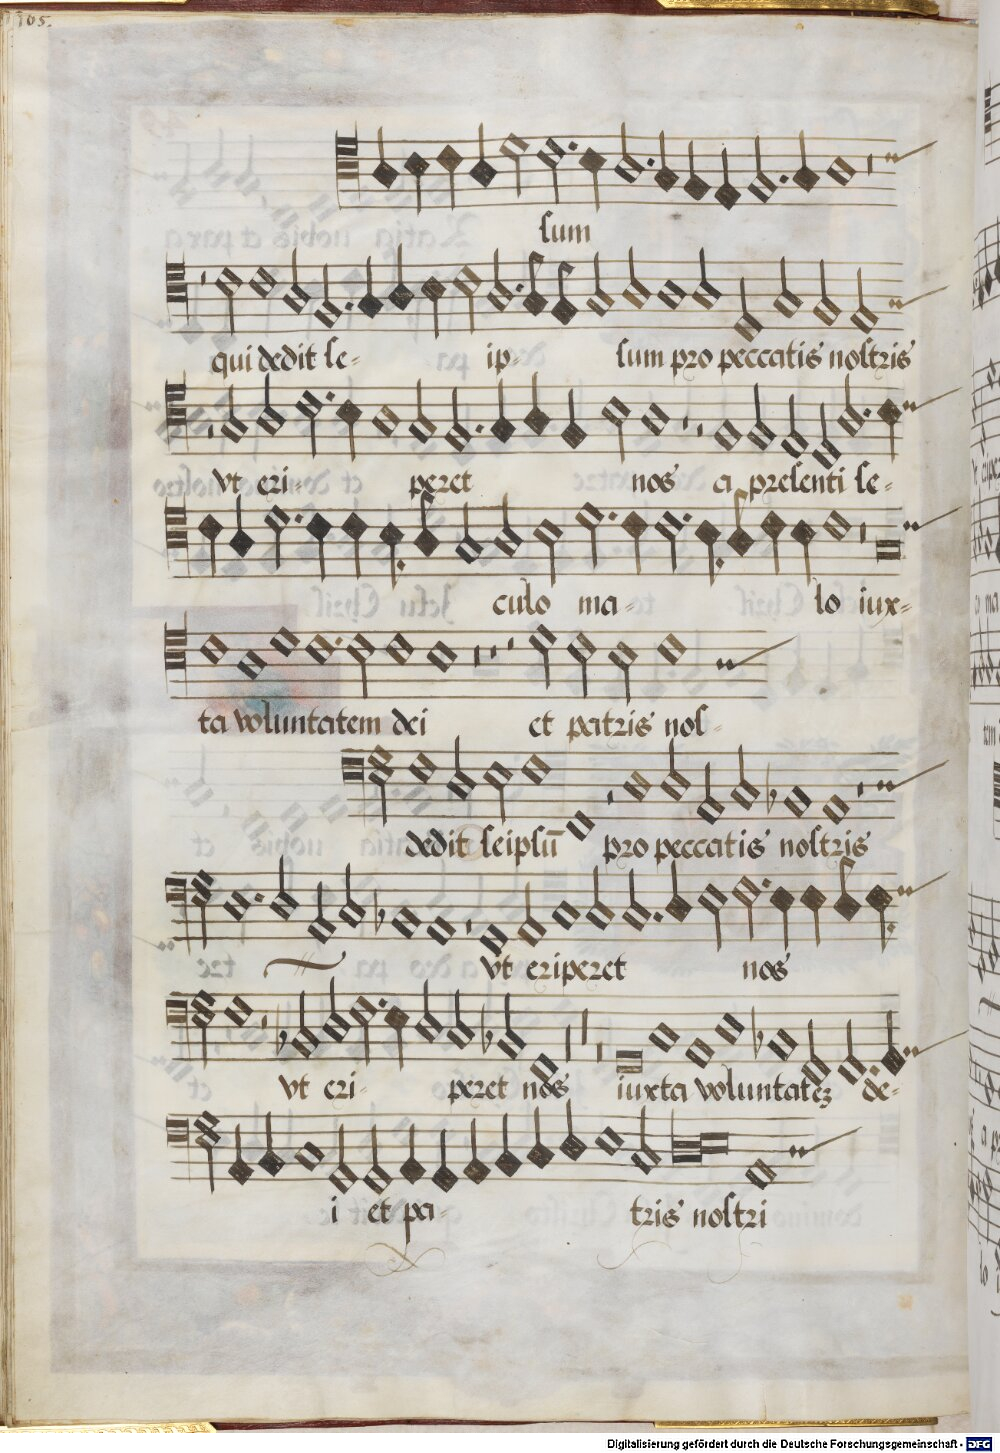 105.
sum
qui dedit se- ip- sum pro peccatis nostris
vt eri- peret nos a presenti se-
culo ma- lo iux-
ta voluntatem dei et patris nos-
dedit seipsū pro peccatis nostris
vt eriperet nos
vt eri- peret nos iuxta voluntatēz de-
i et pa- tris nostri
Digitalisierung gefördert durch die Deutsche Forschungsgemeinschaft - DFG